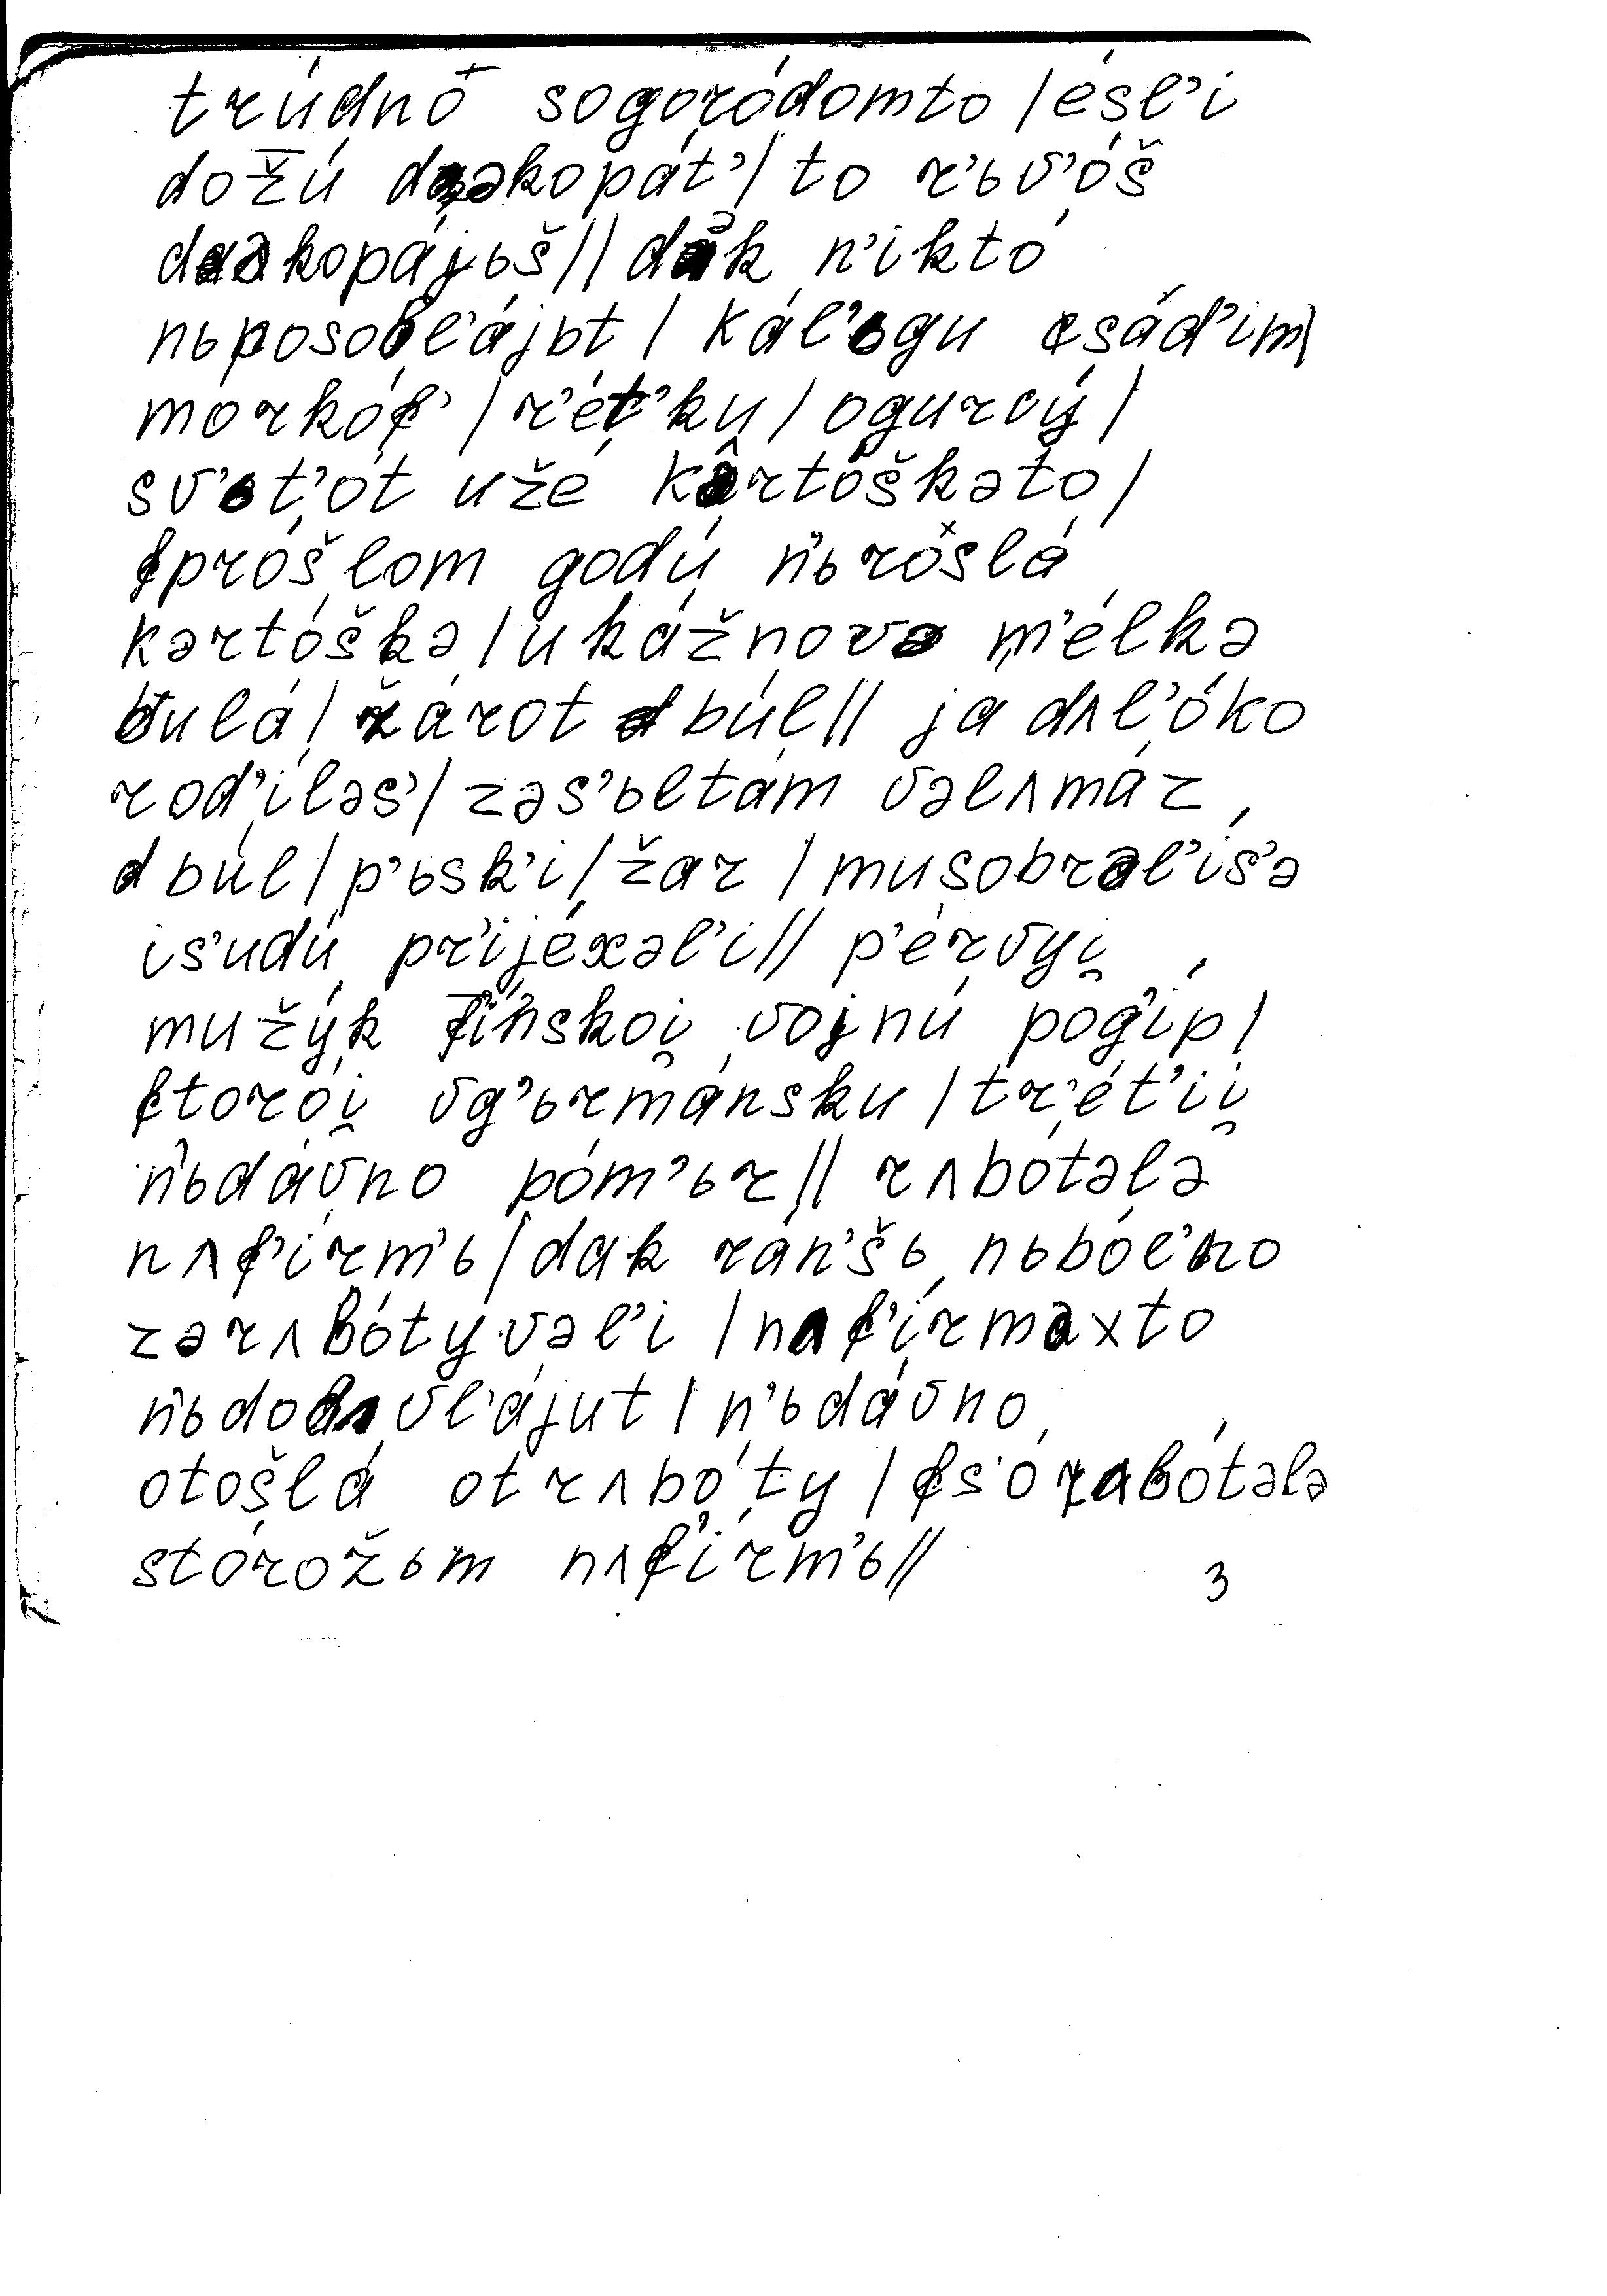 trúdnō sogoródomto / ésl’i
dožú dəkopát’ / to r’ьv’óš
dʌkopájьš // dak n’iktó
nьposobl’ájьt / kál’ьgu fsád’im /
morkóf’ / r’ét’ku / ogurcý /
sv’ьt’ót užé kartóškəto /
fpróšlom godú n’ьroslá
kərtóškə / ukážnovo m’élkə
bulá / žárot búl // ja dʌl’óko
rod’íləs’ / zəs’ьltám vəlʌmáz
búl / p’ьsk’í / žar / musobrəl’ís’ə
is’udú pr’ijéxəl’i // p’érvyi̯
mužýk f’ínskoi̯ vojnú pog’íp /
ftorói̯ vg’ьrmánsku / tr’ét’ii̯
n’ьdávno póm’ьr // rʌbótələ
nʌf’írm’ь / dak rán’šь nьból’no
zərʌbótyvəl’i / nʌf’írməxto
n’ьdobʌvl’ájut / n’ьdávno
otošlá otrʌbóty / fs’órʌbótələ
stórožьm nʌf’írm’ь //
3